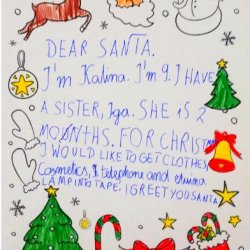 DEAR SANTA.
I'm Kalina. I'm 9. I HAVE
A SISTER, Iga. SHE IS 2
MOONTHS. FOR CHRISTM
I WOULD LIKE TO GET CLOTHES,
Cosmetics, telephone and
LAMP INTO TAPE. I GREET YOU SANTA